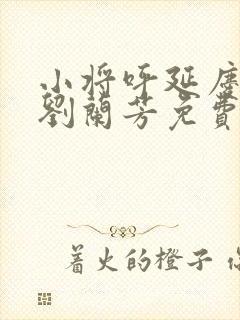 小将呼延庆
劉蘭芳免費
着火的橙子